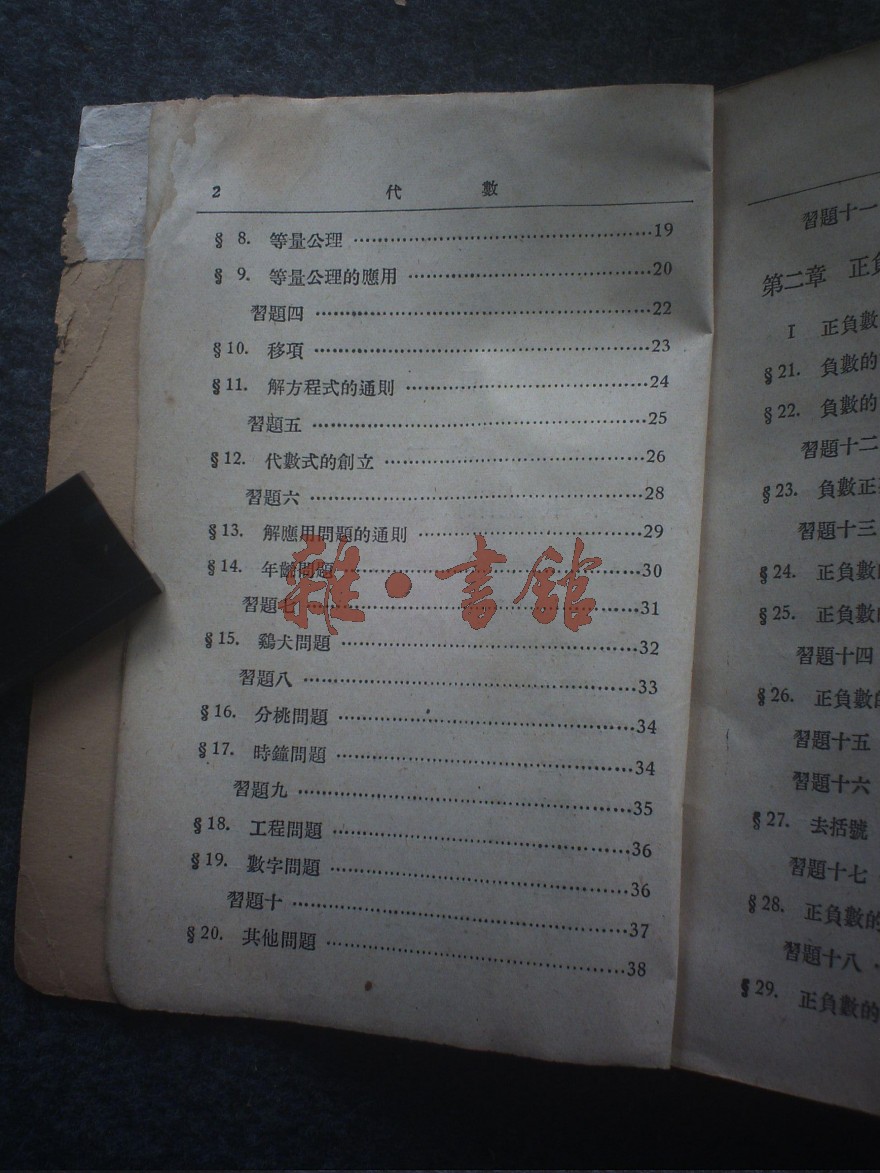 2 代 數
§ 8. 等量公理 ……………………………………19
§ 9. 等量公理的應用 ……………………………20
習題四 ……………………………………22
§10. 移項 ……………………………………23
§11. 解方程式的通則 ……………………………24
習題五 ……………………………………25
§12. 代數式的創立 ……………………………26
習題六 ……………………………………28
§13. 解應用問題的通則 ……………………………29
§14. 年齡問題 ……………………………………30
習題七 ……………………………………31
§15. 鷄犬問題 ……………………………………32
習題八 ……………………………………33
§16. 分桃問題 ……………………………………34
§17. 時鐘問題 ……………………………………34
習題九 ……………………………………35
§18. 工程問題 ……………………………………36
§19. 數字問題 ……………………………………36
習題十 ……………………………………37
§20. 其他問題 ……………………………………38
雜·書館
習題十一
第二章 正負
I 正負數
§21. 負數的
§22. 負數的
習題十二
§23. 負數正
習題十三
§24. 正負數
§25. 正負數
習題十四
§26. 正負數
習題十五
習題十六
§27. 去括號
習題十七
§28. 正負數的
習題十八
§29. 正負數的